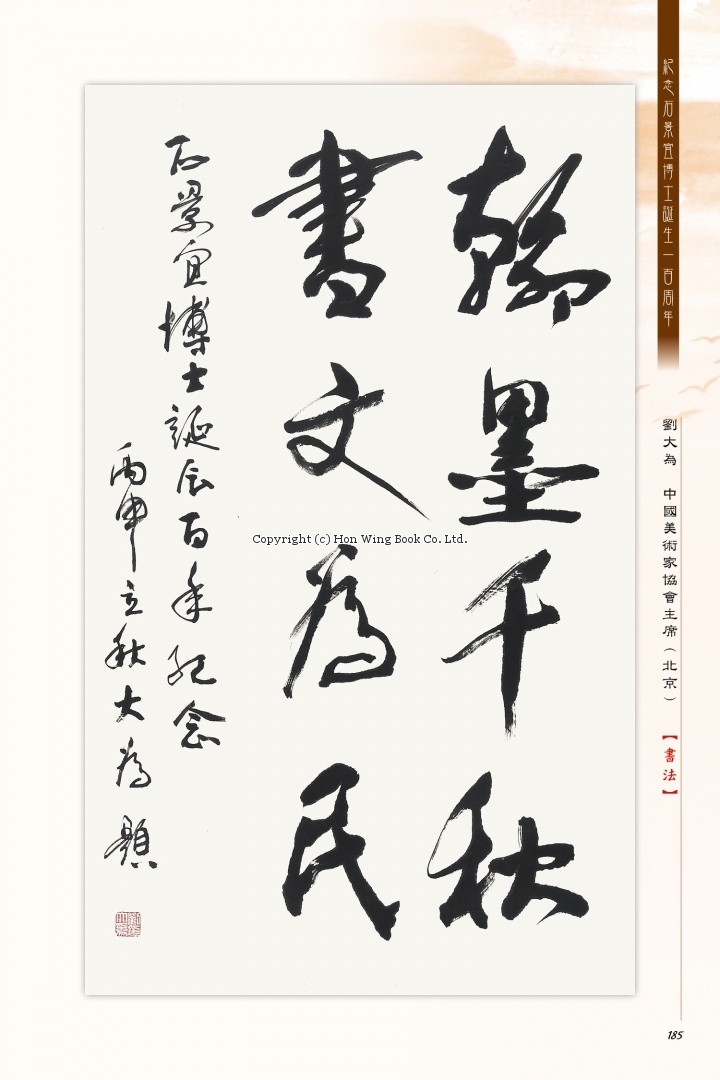 紀念石景宜博士誕生一百周年
劉大為 中國美術家協會主席(北京)
【書法】
翰墨千秋
書文為民
石景宜博士誕辰百年紀念
丙申立秋大為題
Copyright (c) Hon Wing Book Co. Ltd.
185